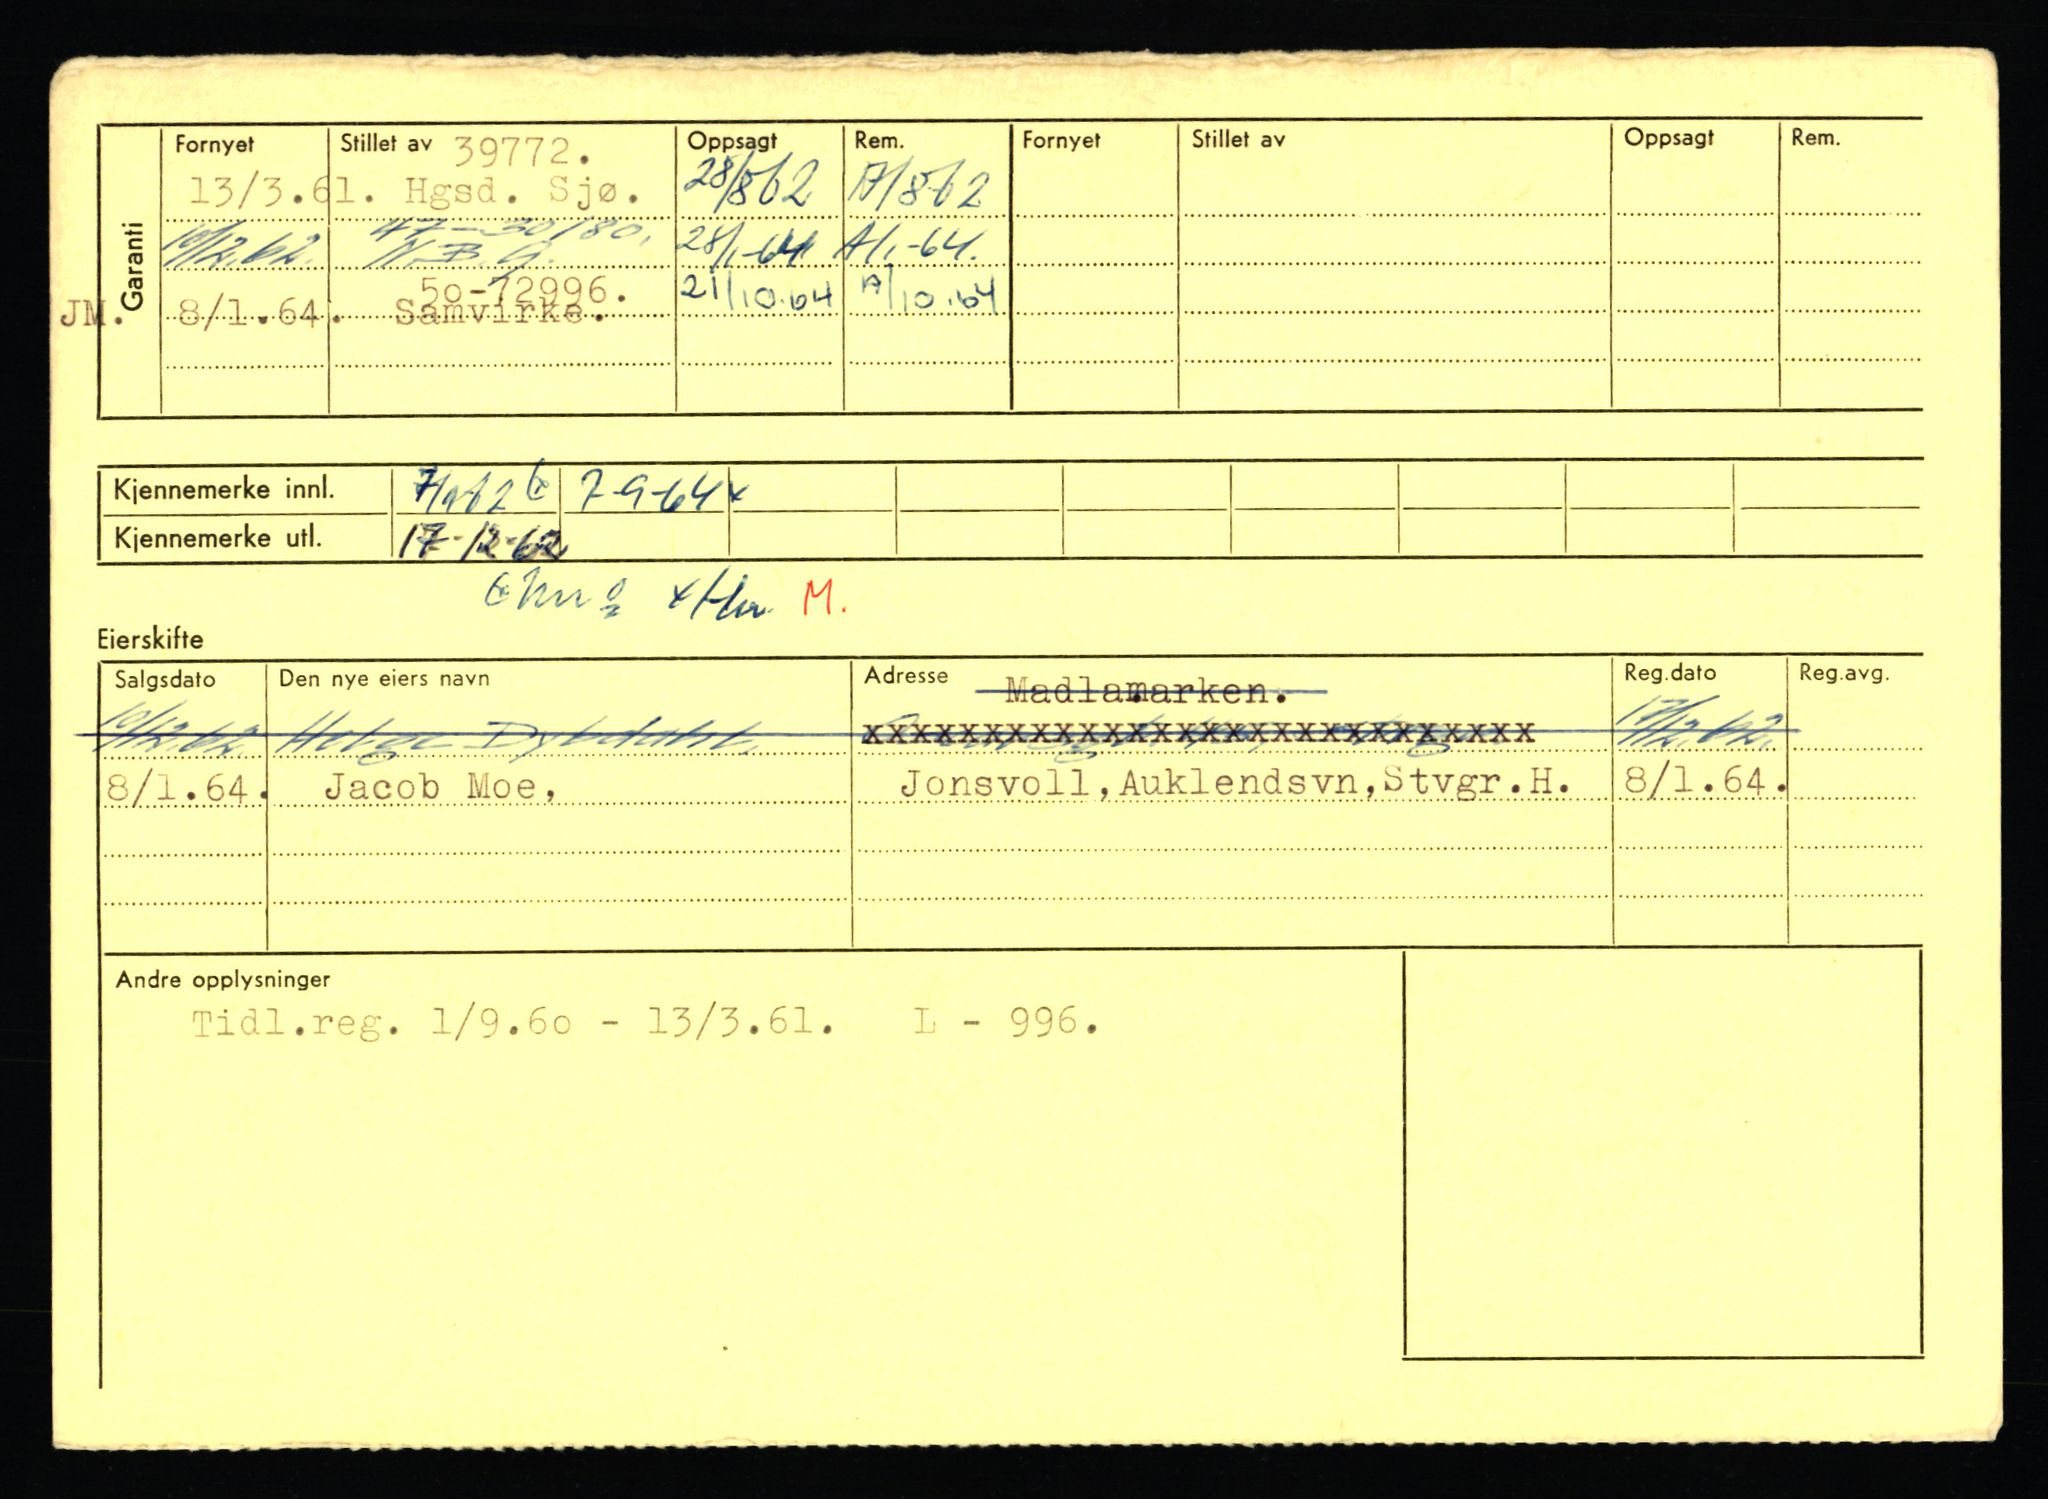 Garanti
Fornyet Stillet av 39772. Oppsagt Rem. Fornyet Stillet av Oppsagt Rem.
13/3.61. Hgsd. Sjø. 28/8 62 A/8-62
47-30180.
10/12.62. N.B.G. 28/1-64 A/1-64.
50-72996. 21/10.64 A/10.64
JM. 8/1.64. Samvirke.
Kjennemerke innl. 7/9 62 7-9-64 x
Kjennemerke utl. 17-12-62
M.
Eierskifte
Salgsdato Den nye eiers navn Adresse Madlamarken. Reg.dato Reg.avg.
10/12.62. Helge Dybdahl. xxxxxxxxxxxxxxxxxxxxxxxxxxxx 17/12.62.
8/1.64. Jacob Moe, Jonsvoll,Auklendsvn,Stvgr.H. 8/1.64.
Andre opplysninger
Tidl.reg. 1/9.6o - 13/3.61. L - 996.